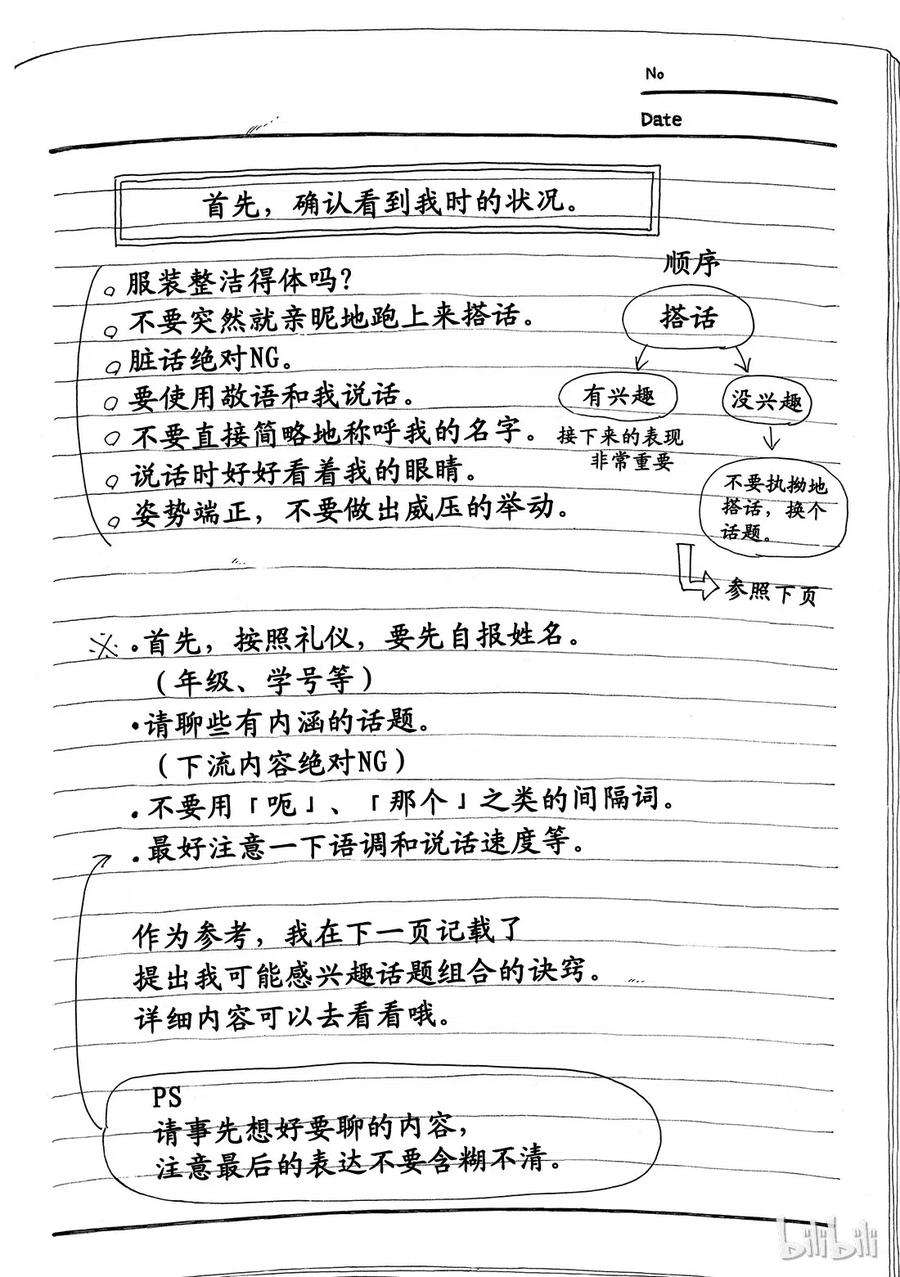 No
Date
首先，确认看到我时的状况。
。服装整洁得体吗？
。不要突然就亲昵地跑上来搭话。
。脏话绝对NG。
。要使用敬语和我说话。
。不要直接简略地称呼我的名字。
。说话时好好看着我的眼睛。
。姿势端正，不要做出威压的举动。
顺序
搭话
有兴趣
接下来的表现
非常重要
没兴趣
不要执拗地
搭话，换个
话题。
参照下页
※ ·首先，按照礼仪，要先自报姓名。
（年级、学号等）
·请聊些有内涵的话题。
（下流内容绝对NG）
·不要用「呃」、「那个」之类的间隔词。
·最好注意一下语调和说话速度等。
作为参考，我在下一页记载了
提出我可能感兴趣话题组合的诀窍。
详细内容可以去看看哦。
PS
请事先想好要聊的内容，
注意最后的表达不要含糊不清。
bilibili